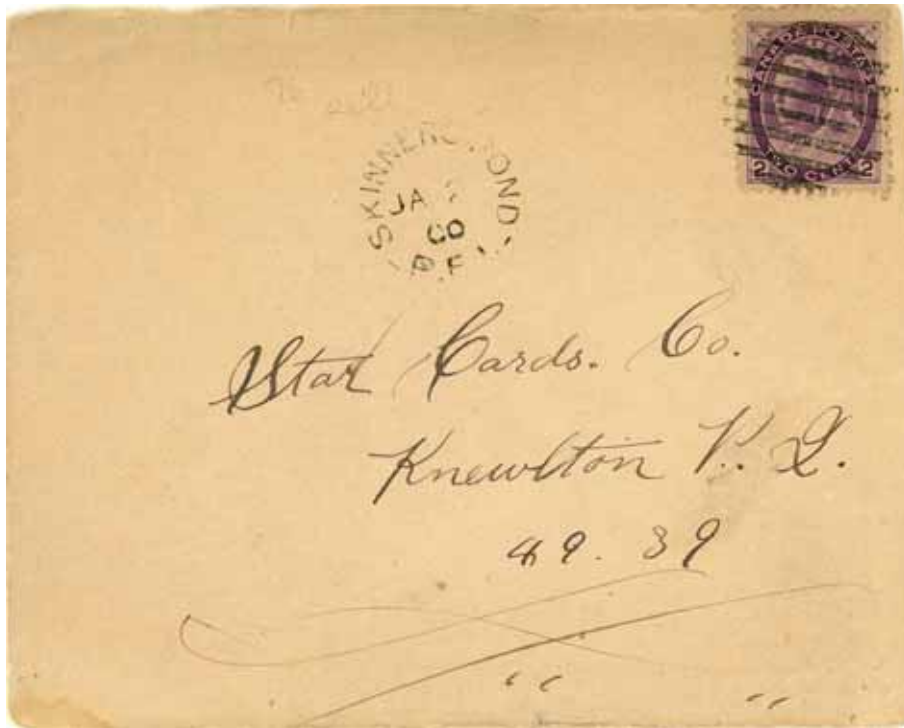 CANADA POSTAGE
TWO CENTS
2 2
SKINNERS POND
JA
00
P.E.I.
Star Cards. Co.
Knewlton P. Q.
49. 39
" "